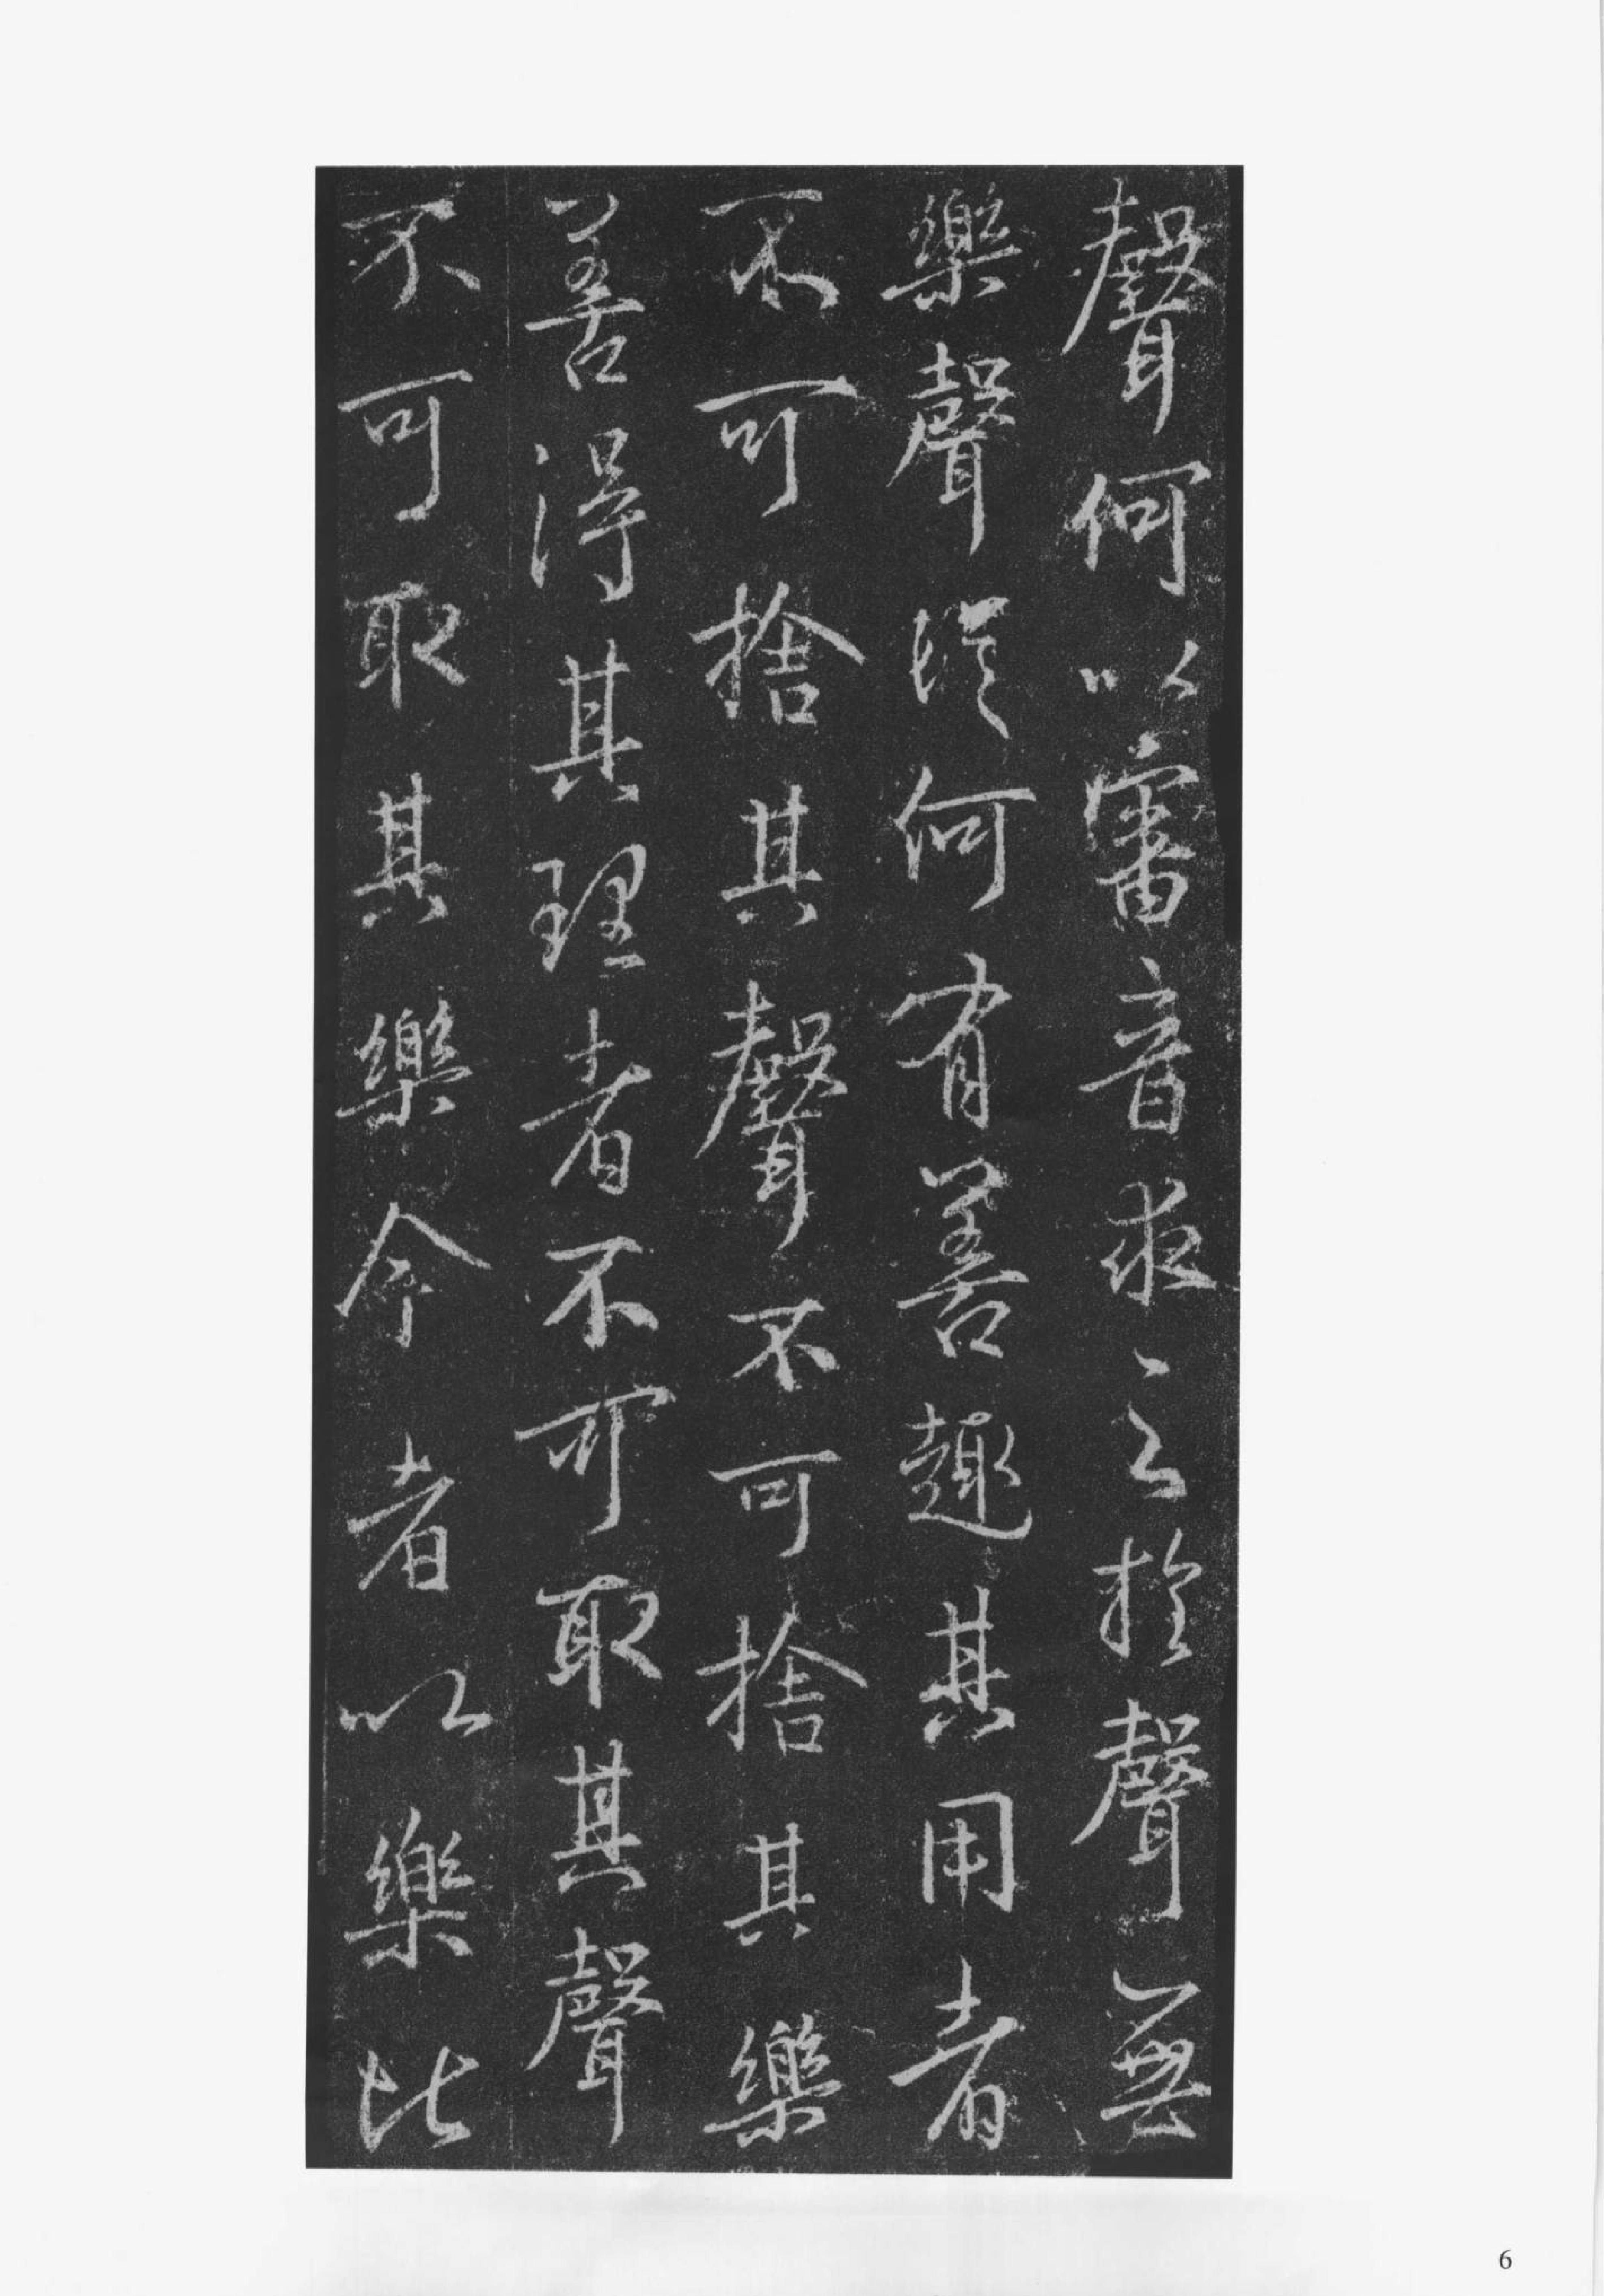 聲何以審音夜之於聲無
樂聲從何有善趣其用者
不可捨其聲不可捨其樂
善得其理者不可取其聲
不可取其樂今者以樂比
6